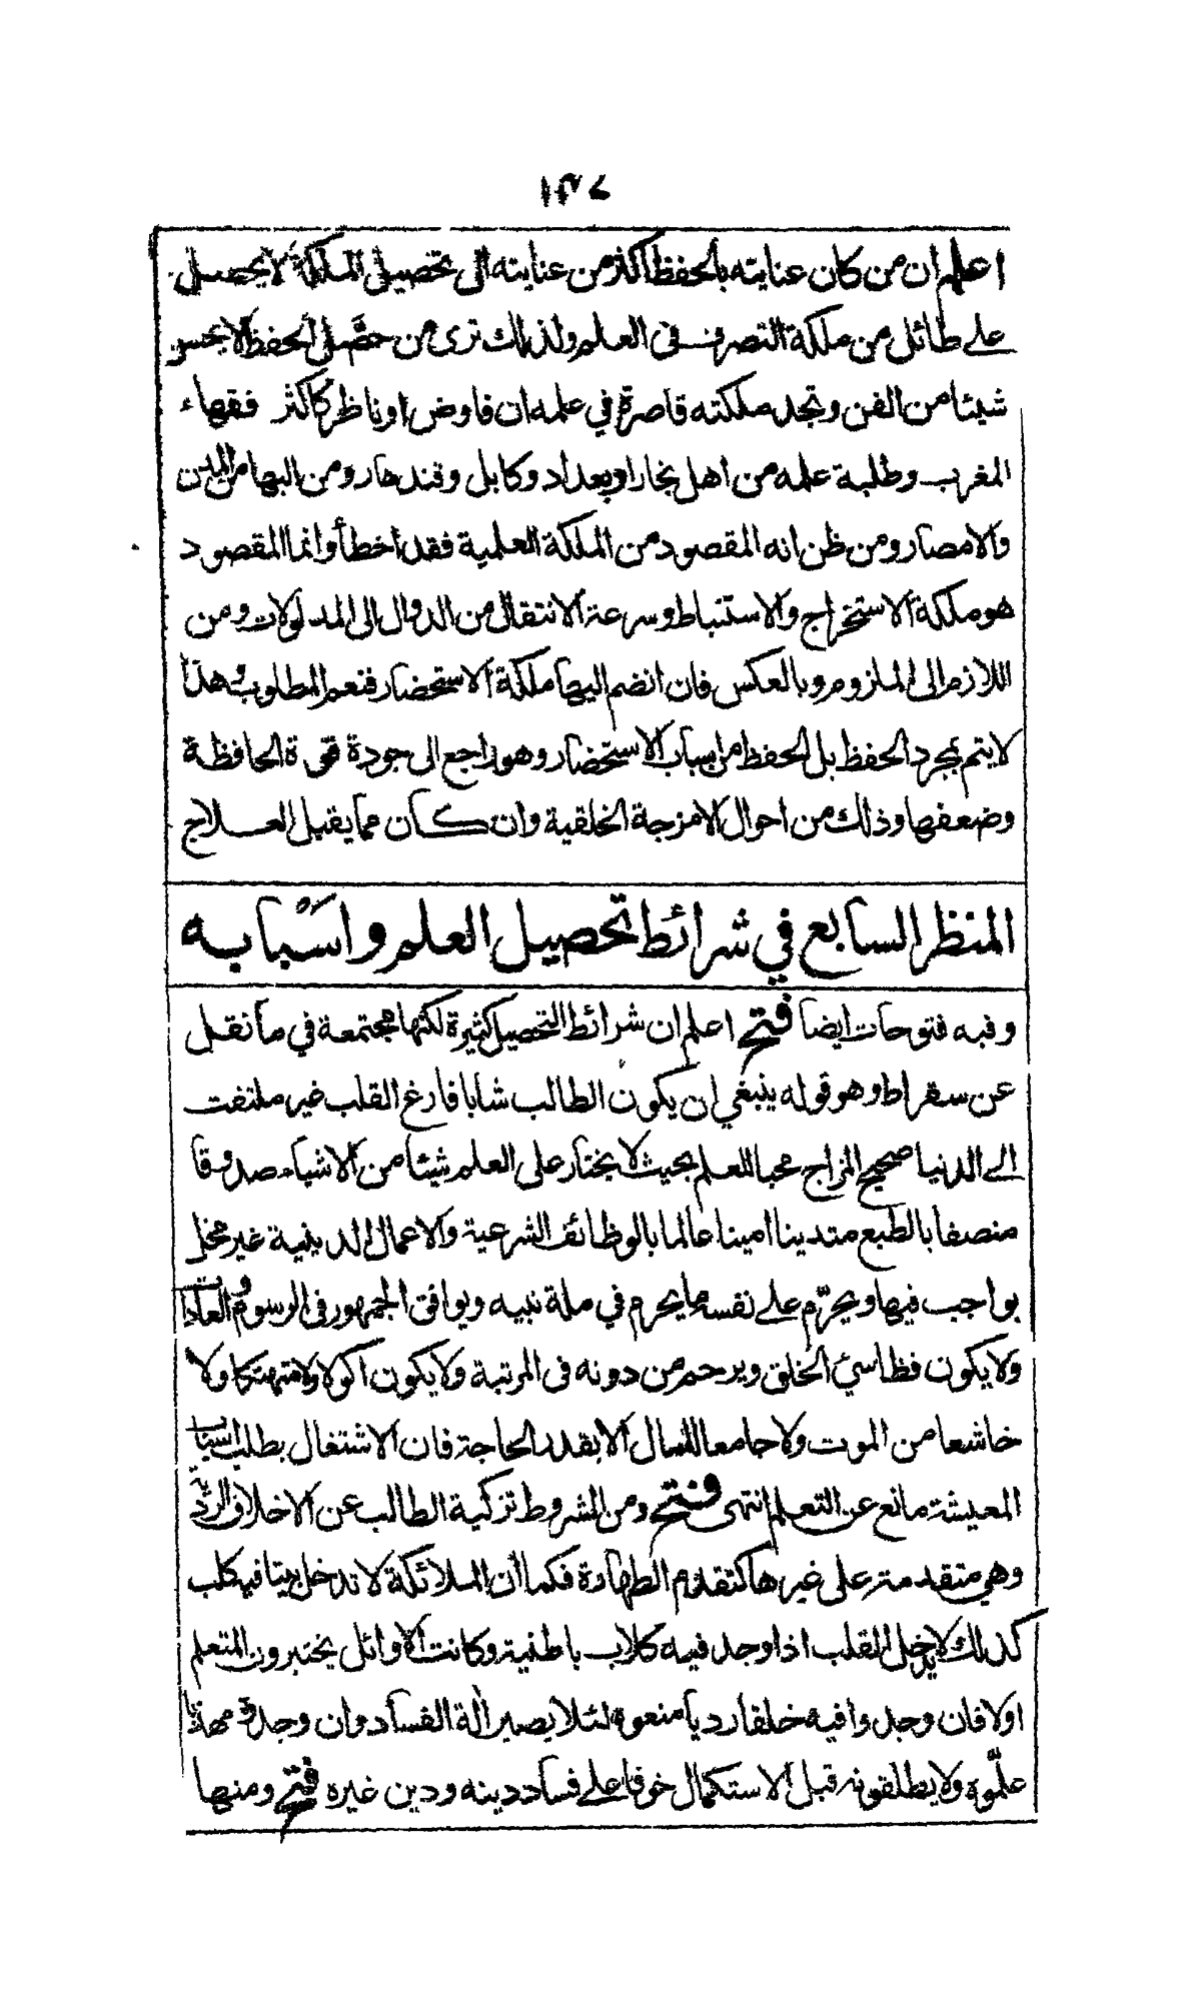 ١٣٧
اعلم ان من كان عنايته بالحفظ اكثر من عنايته الى تحصيل الملكة لا يحصل
على طائل من ملكة التصرف في العلم ولذلك ترى من حصّل الحفظ لا يحسن
شيئا من الفن وتجد ملكته قاصرة في علمه ان فاوض او ناظر كاكثر فقهاء
المغرب وطلبة علمه من اهل بخارا وبغداد وكابل وقندهار ومن اليها من المدن
والامصار ومن ظن انه المقصود من الملكة العلمية فقد اخطأ وانما المقصود
هو ملكة الاستخراج والاستنباط وسرعة الانتقال من الدوال الى المدلولات ومن
اللازم الى الملزوم وبالعكس فان انضم اليها ملكة الاستحضار فنعم المطلوب وهذا
لا يتم بمجرد الحفظ بل الحفظ من اسباب الاستحضار وهو راجع الى جودة قوة الحافظة
وضعفها وذلك من احوال الامزجة الخلقية وان كان مما يقبل العلاج
المنظر السابع في شرائط تحصيل العلم واسبابه
وفيه فتوحات ايضا فتح اعلم ان شرائط التحصيل كثيرة لكنها مجتمعة في ما نقل
عن سقراط وهو قوله ينبغي ان يكون الطالب شابا فارغ القلب غير ملتفت
الى الدنيا صحيح المزاج محبا للعلم بحيث لا يختار على العلم شيئا من الاشياء صدوقا
منصفا بالطبع متدينا امينا عالما بالوظائف الشرعية والاعمال الدينية غير مخل
بواجب فيها ويحرّم على نفسه ما يحرم في ملة نبيه ويوافق الجمهور في الرسوم والعادات
ولا يكون فظا سيئ الخلق ويرحم من دونه في المرتبة ولا يكون اكولا ولا متهتكا ولا
خاشعا من الموت ولا جامعا للمال الا بقدر الحاجة فان الاشتغال بطلب اسباب
المعيشة مانع عن التعلم انتهى فتح ومن الشروط تزكية الطالب عن الاخلاق الردية
وهي متقدمة على غيرها كتقدم الطهارة فكما ان الملائكة لا تدخل بيتا فيه كلب
كذلك لا يدخل القلب اذا وجد فيه كلاب باطنية وكانت الاوائل يختبرون المتعلم
اولا فان وجدوا فيه خلقا رديا منعوه لئلا يصير آلة الفساد وان وجدوه مهذبا
علّموه ولا يطلقونه قبل الاستكمال خوفا على فساد دينه ودين غيره فتح ومنها